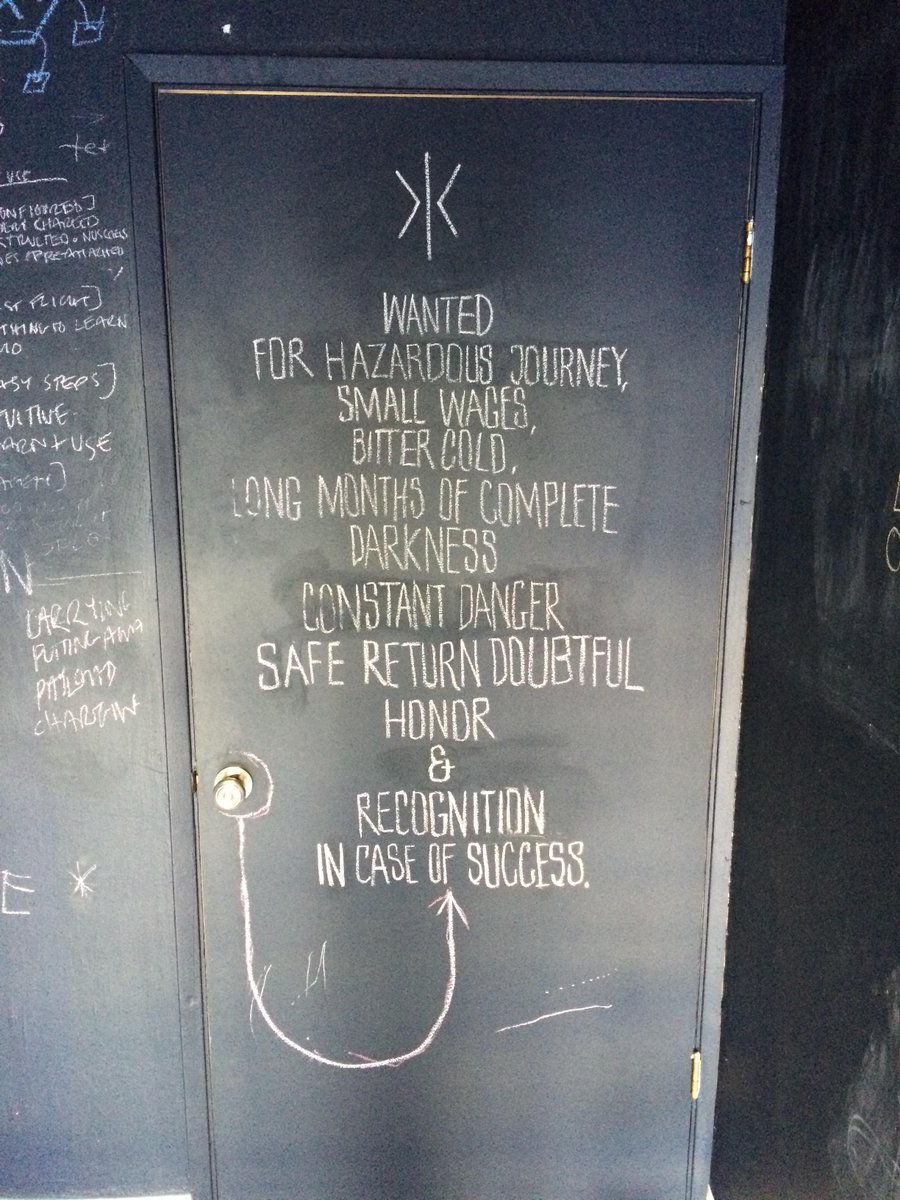 WANTED
FOR HAZARDOUS JOURNEY,
SMALL WAGES,
BITTER COLD,
LONG MONTHS OF COMPLETE
DARKNESS
CONSTANT DANGER
SAFE RETURN DOUBTFUL
HONOR
&
RECOGNITION
IN CASE OF SUCCESS.
USE
FLIGHT]
TO LEARN
STEPS]
+ USE
N
CARRYING
E *